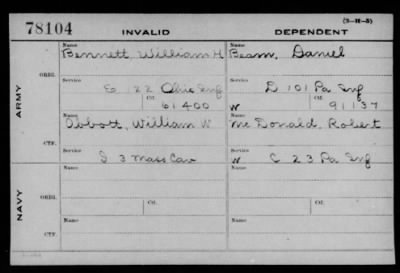 78104
INVALID
DEPENDENT
(3-H-5)
Name
Bennett, William H
Name
Beam, Daniel
ARMY
ORIG.
Service
E 22 Ohio Inf
Ctf.
61400
Service
D 101 Pa Inf
W
Ctf.
91137
CTF.
Name
Abbott, William W
Name
McDonald, Robert
Service
S 3 Mass Cav
Service
W C 23 Pa Inf
NAVY
ORIG.
Name
Name
Service
Ctf.
Service
Ctf.
CTF.
Name
Name